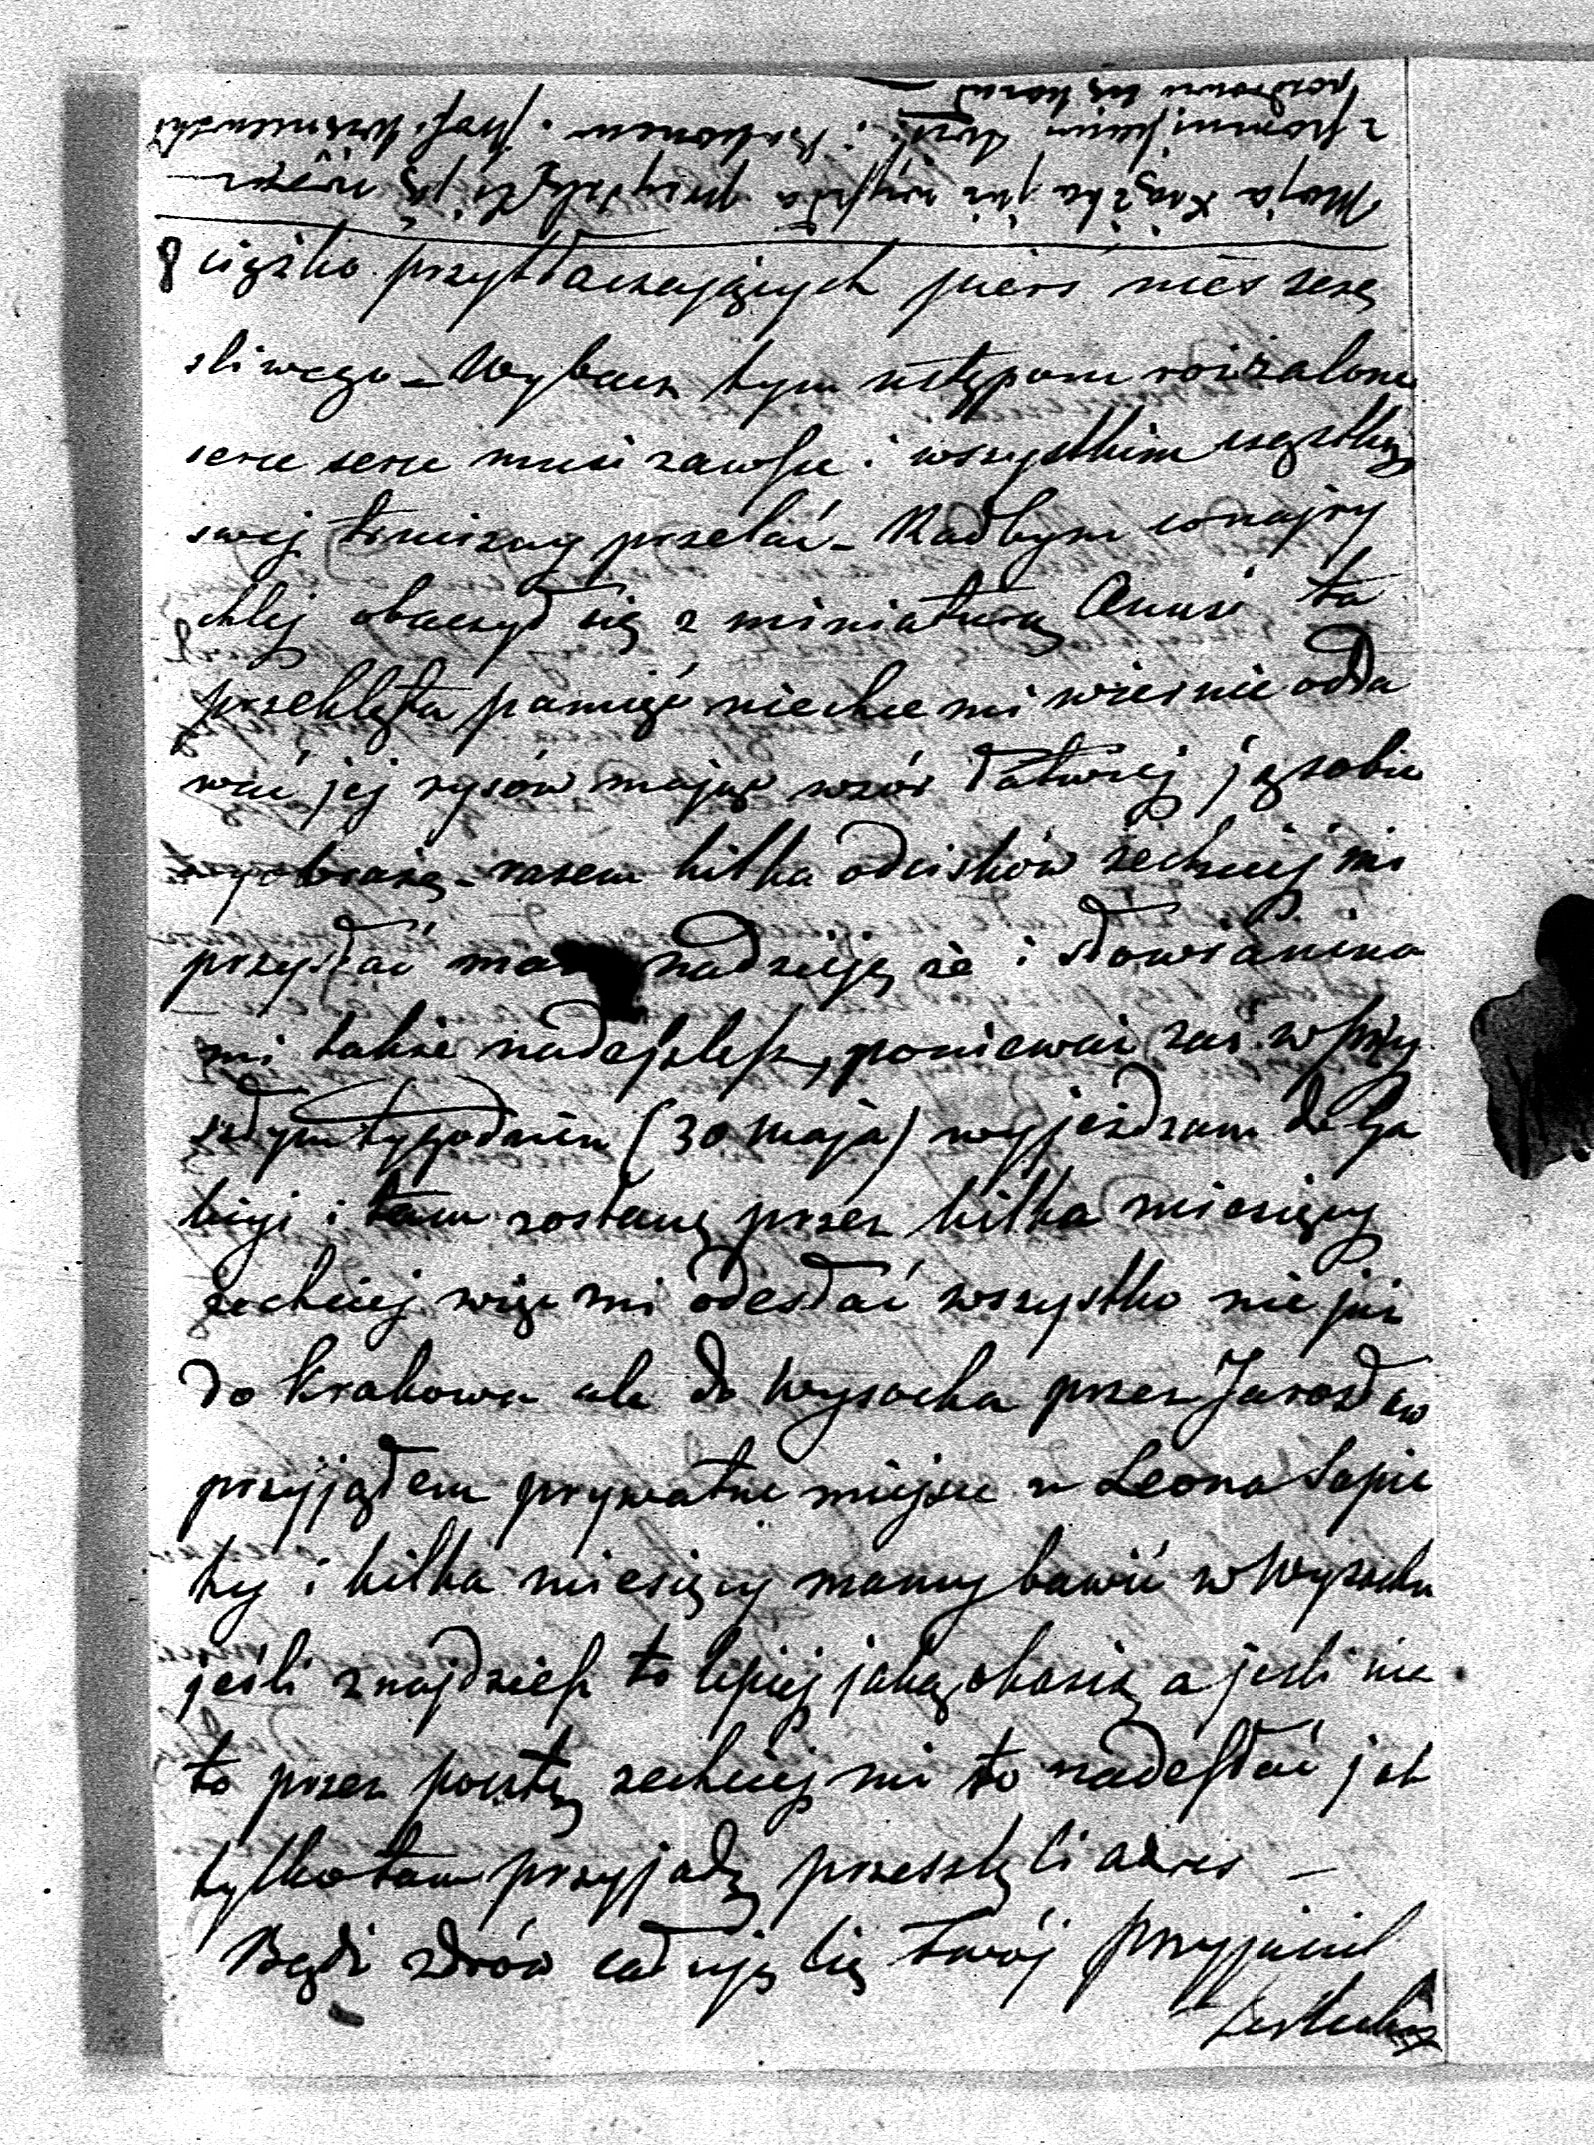 Moja książka już wyszła przyszlę ci ją może
z pozdrowieniem
ciężko przytłaczających pierś niesszczę
śliwego – Wybacz tym ustępom rozżalone
serce serce musi zawsze i wszystkim cząstkę
swej trucizny przelać – Radbym conajry
chlej obaczyć się z miniaturą Anusi ta
przeklęta pamięć niechce mi wiernie odda
wać jej rysów mając wzór łatwiej ją sobie
wyobrażę – razem kilka odcisków zechciej mi
przysłać mam nadzieję że i słowianina
mi także nadejszlesz, ponieważ zaś w przy
szłym tygodniu (30 maja) wyjeżdżam do Ga
licyi i tam zostanę przez kilka miesięcy
zechciej więc mi odesłać wszystko nie już
do Krakowa ale do Wysocka przez Jarosław
przyjąłem prywatne miejsce u Leona Sapie
hy i kilka miesięcy mamy bawić w Wysocku
jeśli znajdziesz to lepiej jaką okazię a jeśli nie
to przez pocztę zechciej mi to nadesłać jak
tylko tam przyjadę przeszlę ci adres –
Bądź zdrów całuję cię twój przyjaciel